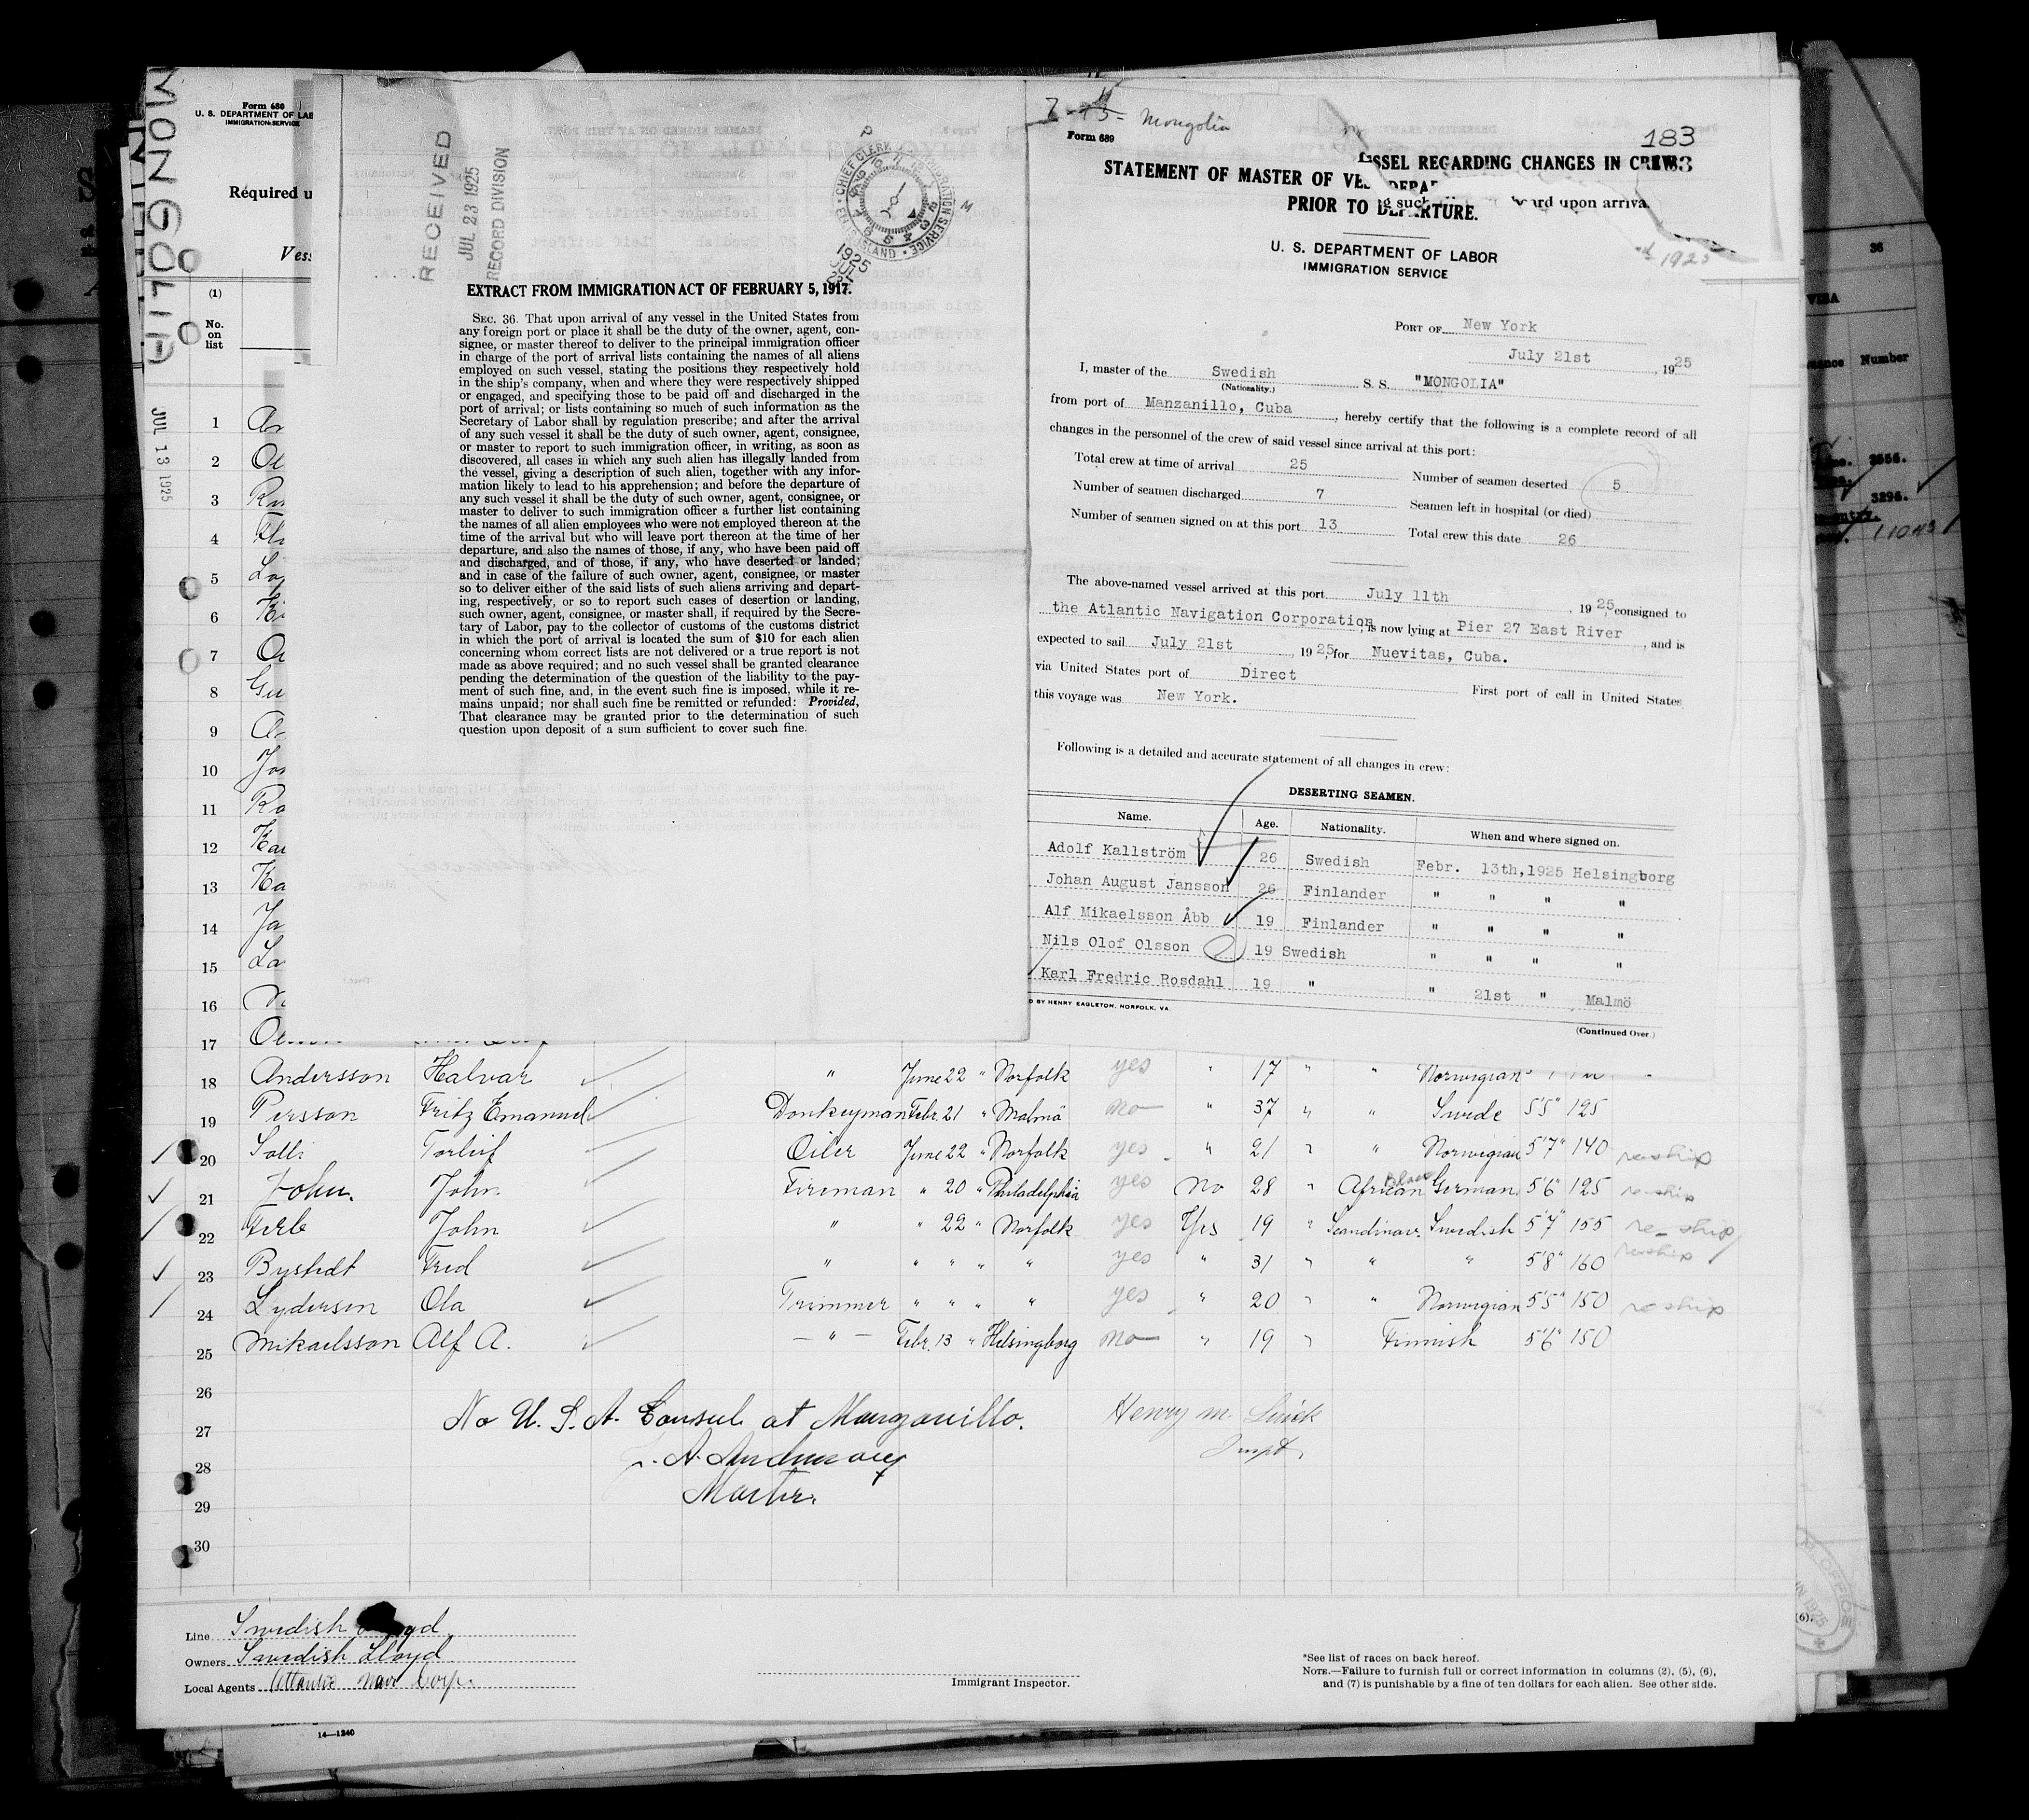 MONGOLIA
Form 680
U. S. DEPARTMENT OF LAB
IMMIGRATION SERVICE
Required u
Vess
(1)
No.
on
list
JUL 13 1925
RECEIVED
JUL 23 1925
RECORD DIVISION
CHIEF CLERK IMMIGRATION SERVICE
ELLIS ISLAND
1925
EXTRACT FROM IMMIGRATION ACT OF FEBRUARY 5, 1917.
SEC. 36. That upon arrival of any vessel in the United States from
any foreign port or place it shall be the duty of the owner, agent, con-
signee, or master thereof to deliver to the principal immigration officer
in charge of the port of arrival lists containing the names of all aliens
employed on such vessel, stating the positions they respectively hold
in the ship's company, when and where they were respectively shipped
or engaged, and specifying those to be paid off and discharged in the
port of arrival; or lists containing so much of such information as the
Secretary of Labor shall by regulation prescribe; and after the arrival
of any such vessel it shall be the duty of such owner, agent, consignee,
or master to report to such immigration officer, in writing, as soon as
discovered, all cases in which any such alien has illegally landed from
the vessel, giving a description of such alien, together with any infor-
mation likely to lead to his apprehension; and before the departure of
any such vessel it shall be the duty of such owner, agent, consignee, or
master to deliver to such immigration officer a further list containing
the names of all alien employees who were not employed thereon at the
time of the arrival but who will leave port thereon at the time of her
departure, and also the names of those, if any, who have been paid off
and discharged, and of those, if any, who have deserted or landed;
and in case of the failure of such owner, agent, consignee, or master
so to deliver either of the said lists of such aliens arriving and depart-
ing, respectively, or so to report such cases of desertion or landing,
such owner, agent, consignee, or master shall, if required by the Secre-
tary of Labor, pay to the collector of customs of the customs district
in which the port of arrival is located the sum of $10 for each alien
concerning whom correct lists are not delivered or a true report is not
made as above required; and no such vessel shall be granted clearance
pending the determination of the question of the liability to the pay-
ment of such fine, and, in the event such fine is imposed, while it re-
mains unpaid; nor shall such fine be remitted or refunded: Provided,
That clearance may be granted prior to the determination of such
question upon deposit of a sum sufficient to cover such fine.
Mongolia
Form 689
183
STATEMENT OF MASTER OF VES ESSEL REGARDING CHANGES IN CREW
PRIOR TO DEPARTURE.
g such board upon arriva
1925
U. S. DEPARTMENT OF LABOR
IMMIGRATION SERVICE
PORT OF New York
July 21st, 1925
I, master of the Swedish S. S. "MONGOLIA"
(Nationality.)
from port of Manzanillo, Cuba, hereby certify that the following is a complete record of all
changes in the personnel of the crew of said vessel since arrival at this port:
Total crew at time of arrival 25 Number of seamen deserted 5
Number of seamen discharged 7 Seamen left in hospital (or died)
Number of seamen signed on at this port 13 Total crew this date 26
The above-named vessel arrived at this port July 11th, 1925, consigned to
the Atlantic Navigation Corporation, is now lying at Pier 27 East River, and is
expected to sail July 21st, 1925, for Nuevitas, Cuba.
via United States port of Direct First port of call in United States
this voyage was New York.
Following is a detailed and accurate statement of all changes in crew:
DESERTING SEAMEN.
Name. Age. Nationality. When and where signed on.
Adolf Kallström 26 Swedish Febr. 13th, 1925 Helsingborg
Johan August Jansson 26 Finlander " " " "
Alf Mikaelsson Åbb 19 Finlander " " " "
Nils Olof Olsson 19 Swedish " " " "
Karl Fredric Rosdahl 19 " " 21st " Malmö
D BY HENRY EAGLETON, NORFOLK, VA.
(Continued Over.)
36
VISA
Number
3296.
1
2
3
4
5
6
7
8
9
10
11
12
13
14
15
16
17
18 Andersson Halvar " June 22 " Norfolk yes " 17 " " Norwegian
19 Persson Fritz Emanuel Donkeyman Febr. 21 " Malmö no " 37 " " Swede 5'5" 125
20 Solli Torleif Oiler June 22 " Norfolk yes " 21 " " Norwegian 5'7" 140 reship
21 John. John Fireman " 20 " Philadelphia yes No 28 " African Black German 5'6" 125 reship
22 Ferb John " " 22 " Norfolk yes Yes 19 " Scandinav. Swedish 5'7" 155 re-ship
23 Bystedt Fred " " " " " yes " 31 " " " 5'8" 160 reship
24 Lydersen Ola Trimmer " " " " yes " 20 " " Norwegian 5'5" 150 reship
25 Mikaelsson Alf A. — " — Febr. 13 " Helsingborg no " 19 " Finnish 5'6" 150
26
27 No U. S. A. Consul at Manzanillo.
Henry M.
Inspt.
28
Master.
29
30
Line Swedish Lloyd
Owners Swedish Lloyd
Local Agents Atlantic Nav Corp.
Immigrant Inspector.
*See list of races on back hereof.
NOTE.—Failure to furnish full or correct information in columns (2), (5), (6),
and (7) is punishable by a fine of ten dollars for each alien. See other side.
14—1240